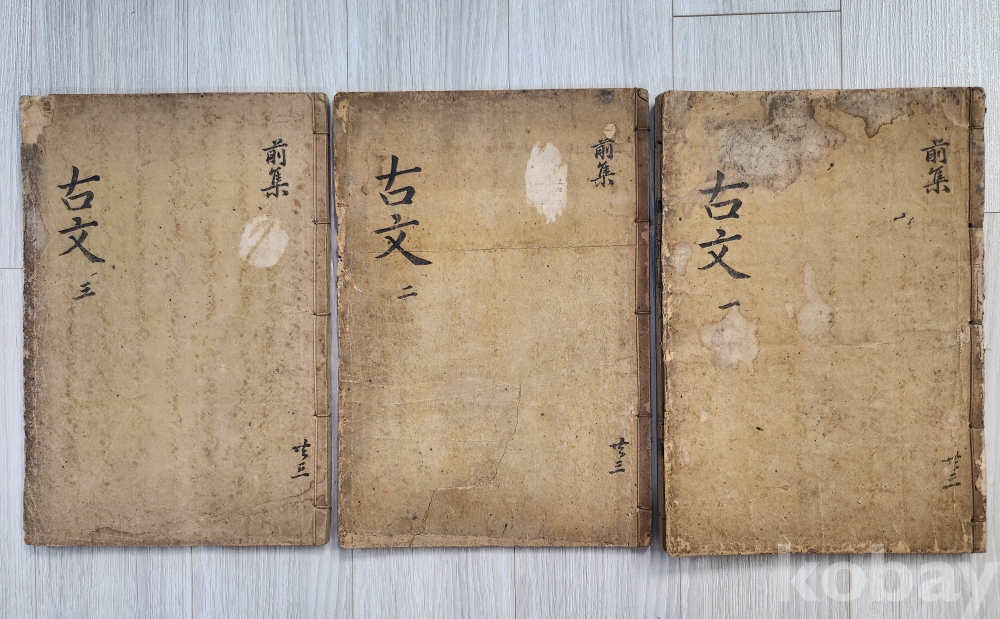 前集
共三
古文 一
前集
共三
古文 二
前集
共三
古文 三
kobay